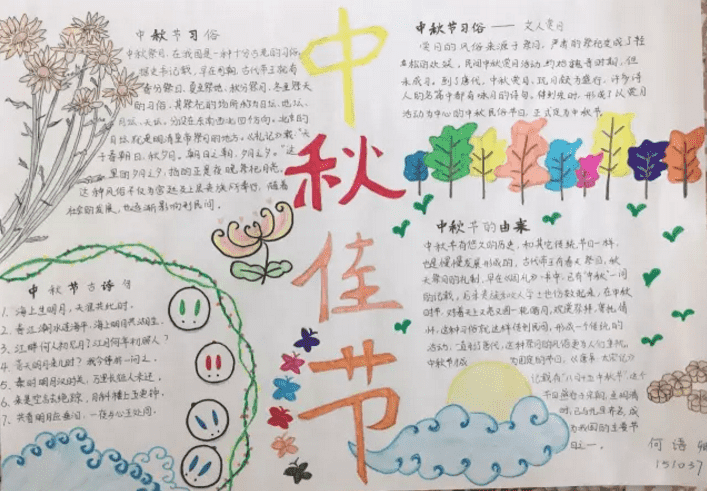 中秋佳节
中秋节习俗
中秋祭月,在我国是一种十分古老的习俗。
据史书记载,早在周朝,古代帝王就有
春分祭日、夏至祭地、秋分祭月、冬至祭天
的习俗,其祭祀的场所称为日坛、地坛、
月坛、天坛,分设在东南西北四个方向。北京的
月坛就是明清皇帝祭月的地方。《礼记》载:"天
子春朝日,秋夕月。朝日之朝,夕月之夕。"这
里的夕月之夕,指的正是夜晚祭祀月亮。
这种风俗不仅为宫廷及上层贵族所奉行,随着
社会的发展,也逐渐影响到民间。
中秋节习俗——文人赏月
赏月的风俗来源于祭月,严肃的祭祀变成了轻
松的欢娱。民间中秋赏月活动约始魏晋时期,但
未成习。到了唐代,中秋赏月、玩月颇为盛行,许多诗
人的名篇中都有咏月的诗句。待到宋时,形成了以赏月
活动为中心的中秋民俗节日,正式定为中秋节。
中秋节的由来
中秋节有悠久的历史,和其它传统节日一样,
也是慢慢发展形成的,古代帝王有春天祭日,秋
天祭月的礼制,早在《周礼》一书中,已有"中秋"一词
的记载。后来贵族和文人学士也仿效起来,在中秋
时节,对着天上又亮又圆一轮皓月,观赏祭拜,寄托情
怀,这种习俗就这样传到民间,形成一个传统的
活动,一直到了唐代,这种祭月的风俗更为人们重视,
中秋节才成为固定的节日,《唐书·太宗记》
记载有"八月十五中秋节",这个
节日盛行于宋朝,至明清
时,已与元旦齐名,成
为我国的主要节
日之一。
中秋节古诗句
1、海上生明月,天涯共此时。
2、春江潮水连海平,海上明月共潮生。
3、江畔何人初见月?江月何年初照人?
4、青天明月来几时?我今停杯一问之。
5、秦时明月汉时关,万里长征人未还。
6、来是空言去绝踪,月斜楼上五更钟。
7、共看明月应垂泪,一夜乡心五处同。
何语
151037